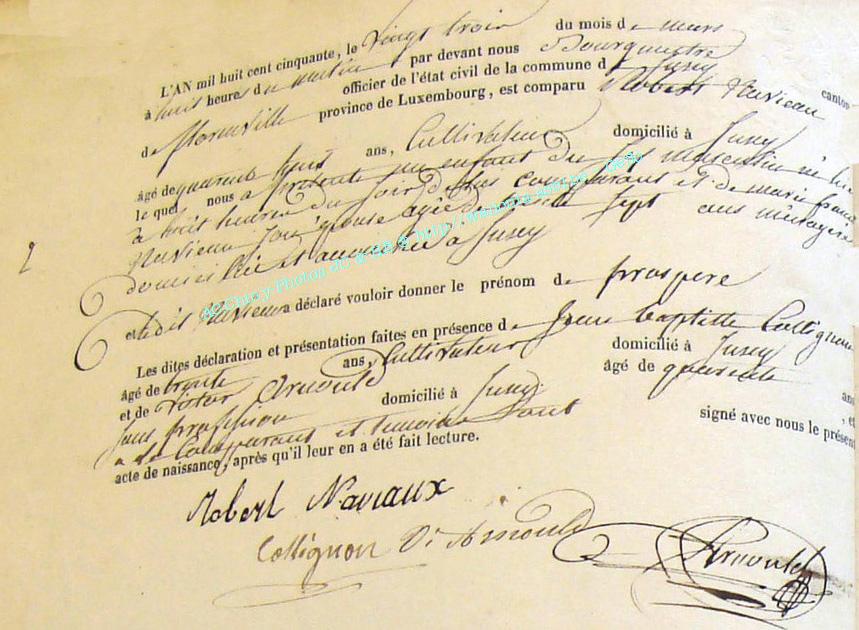 L'AN mil huit cent cinquante, le vingt trois du mois de mars
à huit heures du matin par devant nous Bourgmestre
officier de l'état civil de la commune de Jusey canton
de florenville province de Luxembourg, est comparu Robert Navieau
âgé de quarante huit ans, Cultivateur domicilié à Jusey
lequel nous a présenté un enfant du sexe masculin né hier
à huit heures du soir, de lui comparant et de marie
Navieau son épouse agée de sept ans ménagère
domiciliée et à Jusey
et le dit Navieau a déclaré vouloir donner le prénom de prospere
Les dites déclaration et présentation faites en présence de Jean baptiste Collignon
âgé de trente ans, Cultivateur domicilié à Jusey
et de Victor Arnould âgé de quarante ans
sans profession domicilié à Jusey , et
a le comparant et temoins sont signé avec nous le présent
acte de naissance, après qu'il leur en a été fait lecture.
Robert Naviaux
Collignon Vr Arnould
Arnould